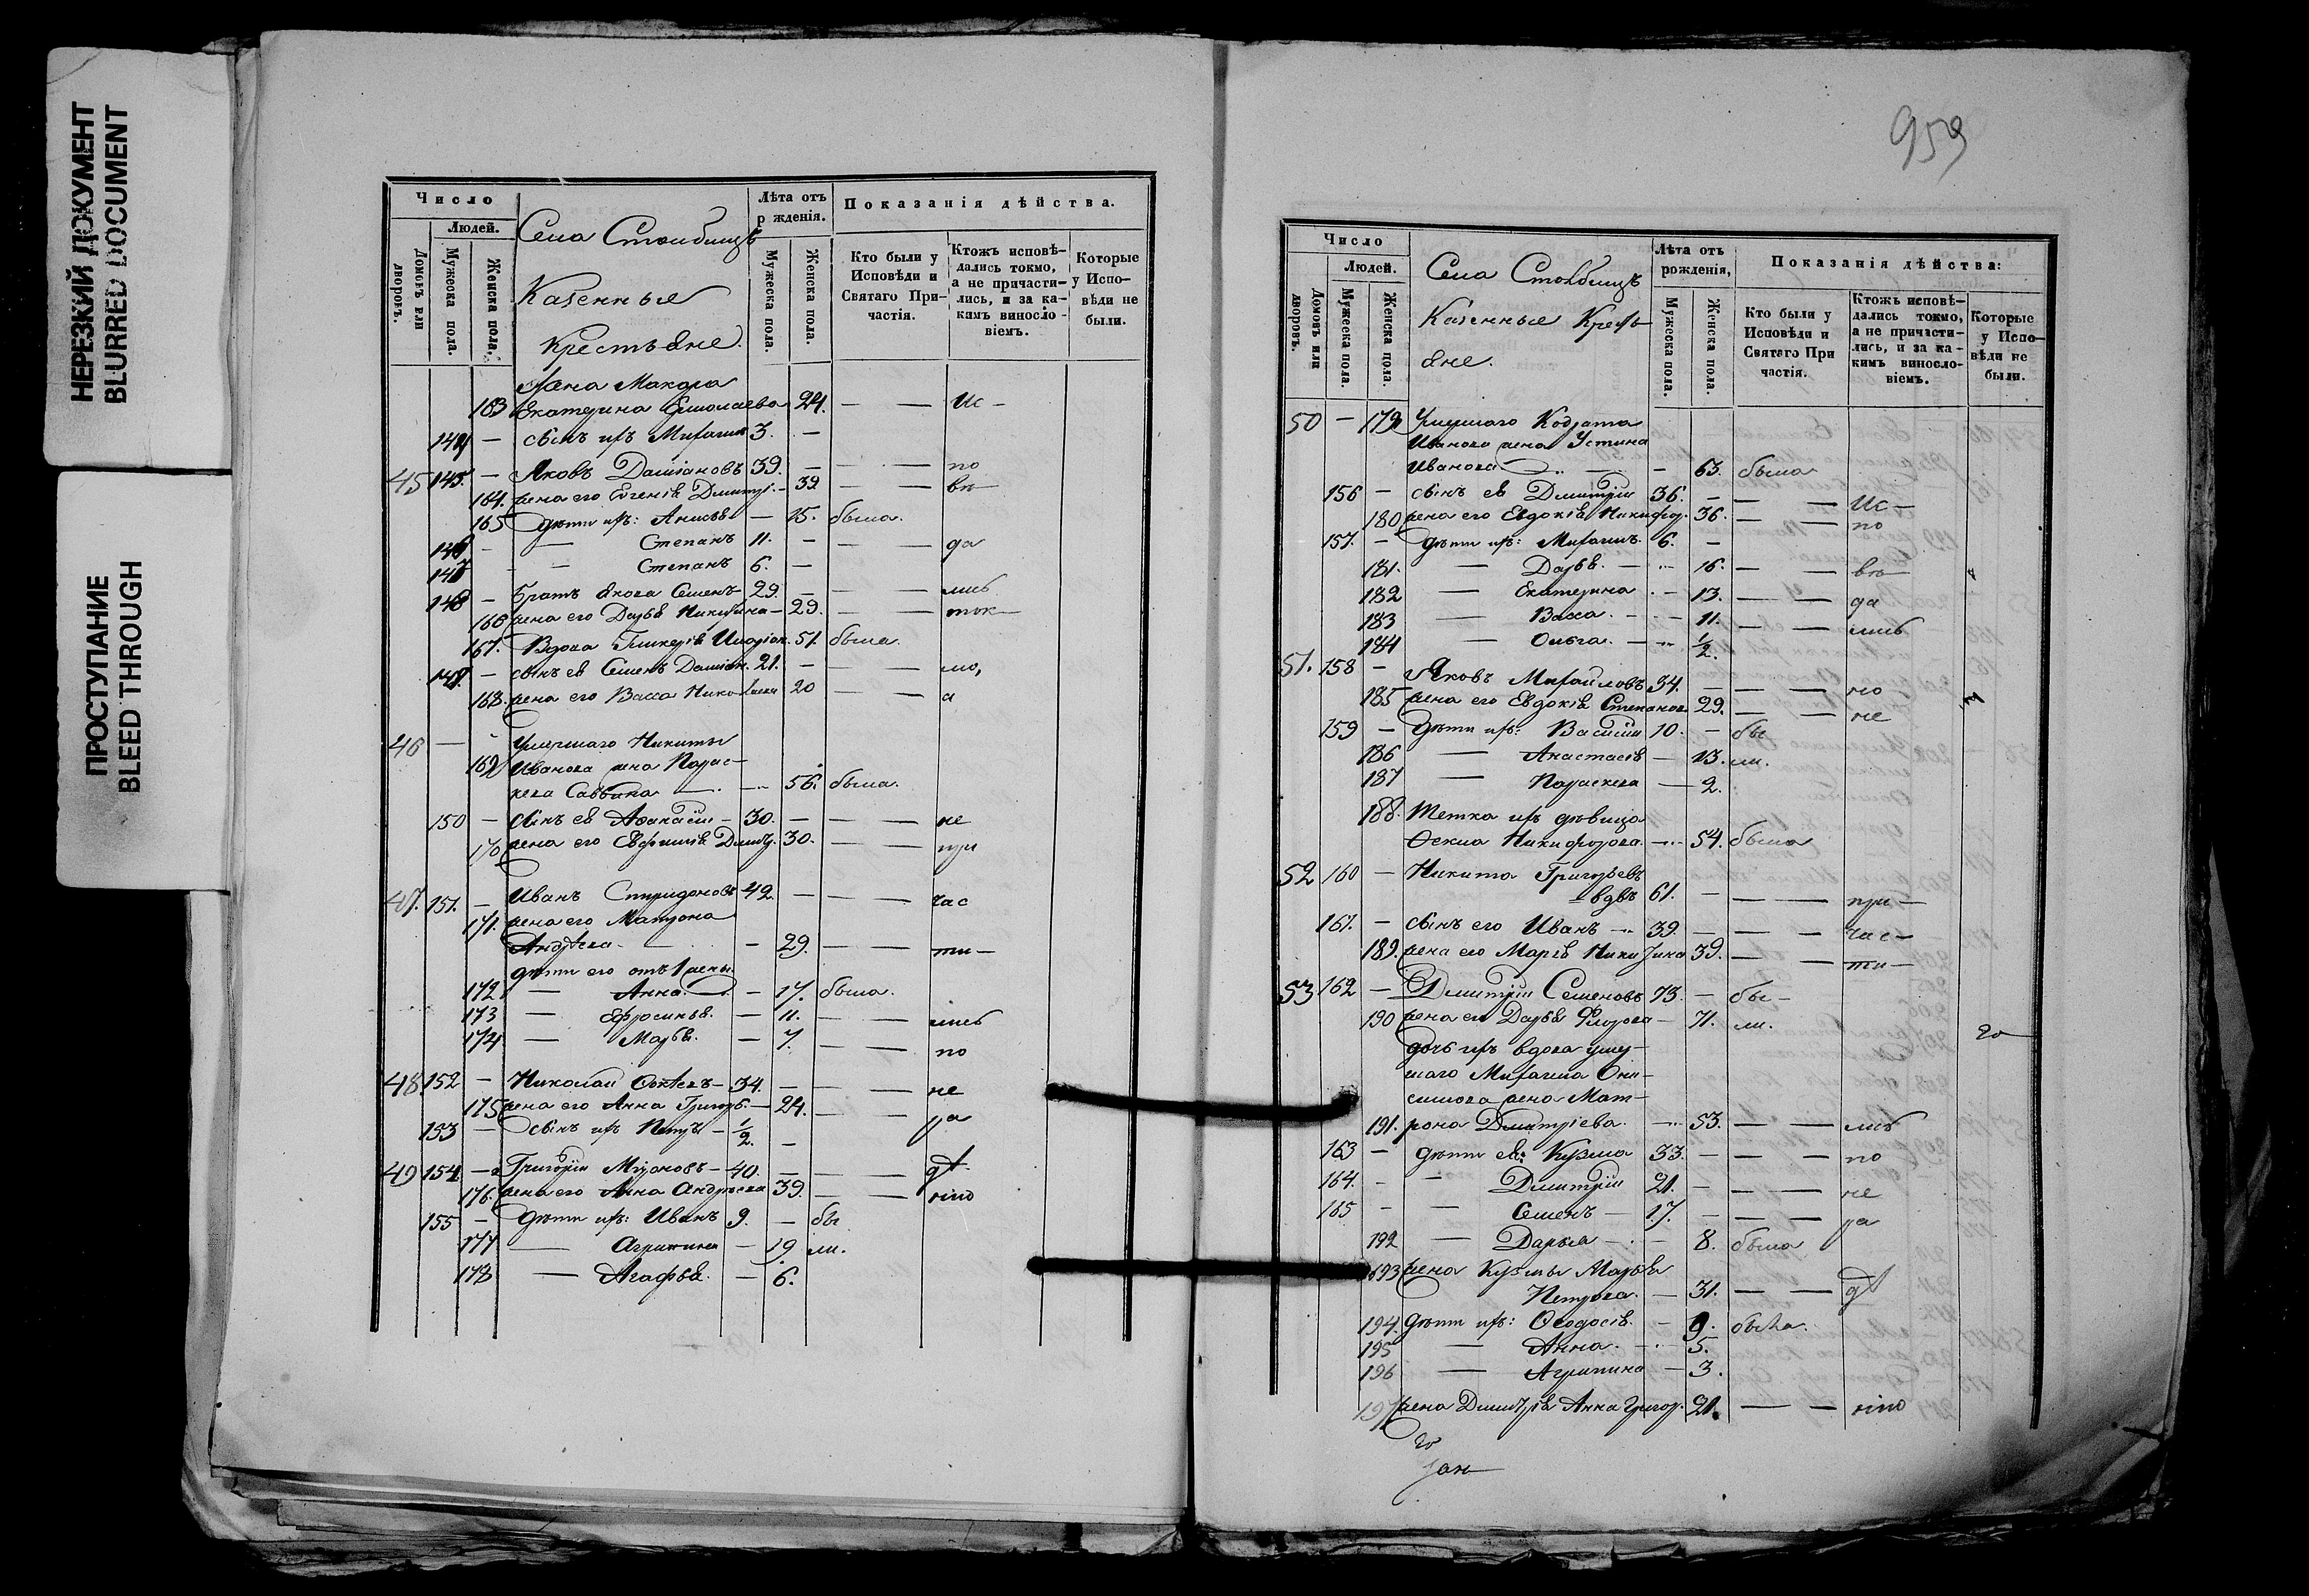 НЕРЕЗКИЙ ДОКУМЕНТ
BLURRED DOCUMENT
ПРОСТУПАНИЕ
BLEED THROUGH
Число
Людей.
Домовъ или дворовъ.
Мужеска пола.
Женска пола.
Села Столбищъ
Казенные
Крестьяне.
Лѣта отъ р жденія.
Мужеска пола.
Женска пола.
Показанія дѣйства.
Кто были у Исповѣди и Святаго Причастія.
Ктожъ исповѣдались токмо, а не причастились, и за какимъ винословіемъ.
Которые у Исповѣди не были.
Жена Макара
163 Екатерина Ермолаева 24. — — Ис –
144 – сынъ ихъ Михаилъ 3. –
45 145. – Яковъ Даміановъ 39. – — — по
164. жена его Евгенія Димитрі. – 39 — — вѣ
165 дѣти ихъ: Анисья – 15. была.
146 – — Степанъ 11. – — — да
147 – – Степанъ 6. –
148 – братъ Якова Семенъ 29. – — — лись
166 жена его Дарья Никитина – 29. — — ток
167. Вдова Гликерія Иларіон. 51. была.
149. – сынъ ея Семенъ Даміан. 21. – — — мо,
168. жена его Васса Николаева 20 — — а
46 — – Умершаго Никиты
169 Иванова жена Парас–
кева Саввина — 56. была.
150 – сынъ ея Аѳанасій – 30. – — — не
170 жена его Евфимія Димитр. 30. — — при
47. 151. – Иванъ Спиридоновъ 42. – — — час
171. жена его Матрона
Андреева – – 29. — — ти –
дѣти его отъ 1 жены
172 — Анна. – 17. была.
173 — Ефросинья. – 11. — — лись
174 — Марья. – 7. — — по
48. 152 – Николай 34. – — — не
175 жена его Анна Григорь. – 24. — — ра
153 – сынъ ихъ Петръ – 1/2. –
49 154 – Григорій 40. – — — дѣ
176. жена его Анна Андреева 39. — — нію
155 – дѣти ихъ: Иванъ 9. – бы
177 — Агрипина – 19. ли.
178 — Агафья. – 6.
959
Число
Людей.
Домовъ или дворовъ.
Мужеска пола.
Женска пола.
Села Столбищъ
Казенные Кресть
яне.
Лѣта отъ рожденія,
Мужеска пола.
Женска пола.
Показанія дѣйства:
Кто были у Исповѣди и Святаго При частія.
Ктожъ исповѣдались токмо, а не причастились, и за какимъ винословіемъ.
Которые у Исповѣди не были.
50 – 179 Умершаго Кодрата
Иванова жена Устина
Иванова. – 63. была
156 – сынъ ея Димитрій 36. – — — Ис –
180 жена его Евдокія Никифор. 36. — — по
157. – дѣти ихъ: Михаилъ 6. –
181. — Дарья. — 16. — — вѣ
182 — Екатерина – 13. — — да
183 — Васса. – 11. — — лись
184 — Ольга. — 1/2.
51. 158 – Яковъ Михайловъ 34. – — — но
185 жена его Евдокія Степанов. 29. — — не
159 – дѣти ихъ: Василій 10. – бы
186 — Анастасія – 13. ли.
187 — Параскева — 2.
188. Тетка ихъ дѣвица
Ѳекла Никифорова. — 54. была
52 160 – Никита Григорьевъ
вдвъ 61. – — — при –
161. – сынъ его Иванъ – 39. – — – час –
189. жена его Марія Никитина 39. — – ти –
53 162 – Димитрій Семеновъ 73. – бы –
190 жена его Дарья Флорова – 71. ли.
дочь ихъ вдова умер–
шаго Михаила Они–
симова жена Мат–
191. рона Димитріева. – 53. — — лись
163 – дѣти ея: Кузма 33. – — – по
164. – – Димитрій 21. – — — не
165 – – Семенъ – 17. – — — ра
192 — Дарья – – 8. была
193 жена Кузмы Марья
Петрова. – 31. — — дѣ
194. дѣти ихъ: Ѳеодосія. – 9. была.
195 — Анна. – 5.
196 — Агрипина – 3.
197 жена Димитрія Анна Григор. 21. — – нію